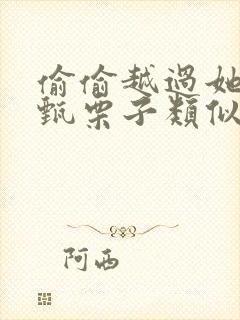 偷偷越過她
甄栗子類似
阿西